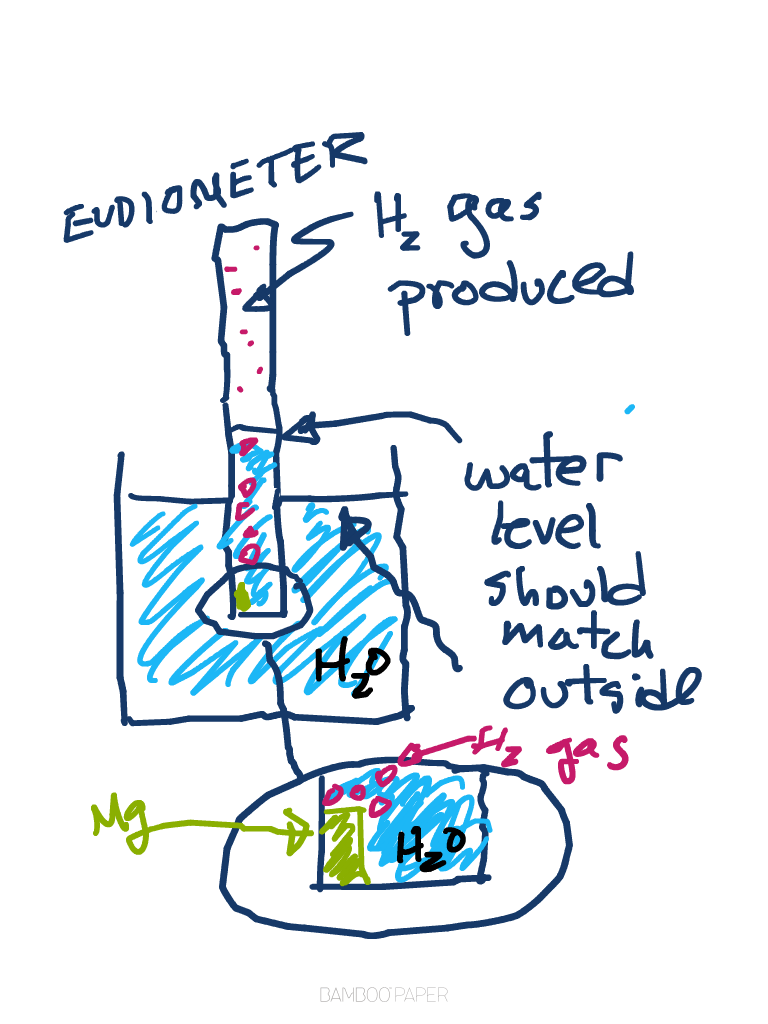 EUDIOMETER
H2 gas
produced
water
level
should
match
outside
H2O
H2 gas
Mg
H2O
BAMBOO PAPER